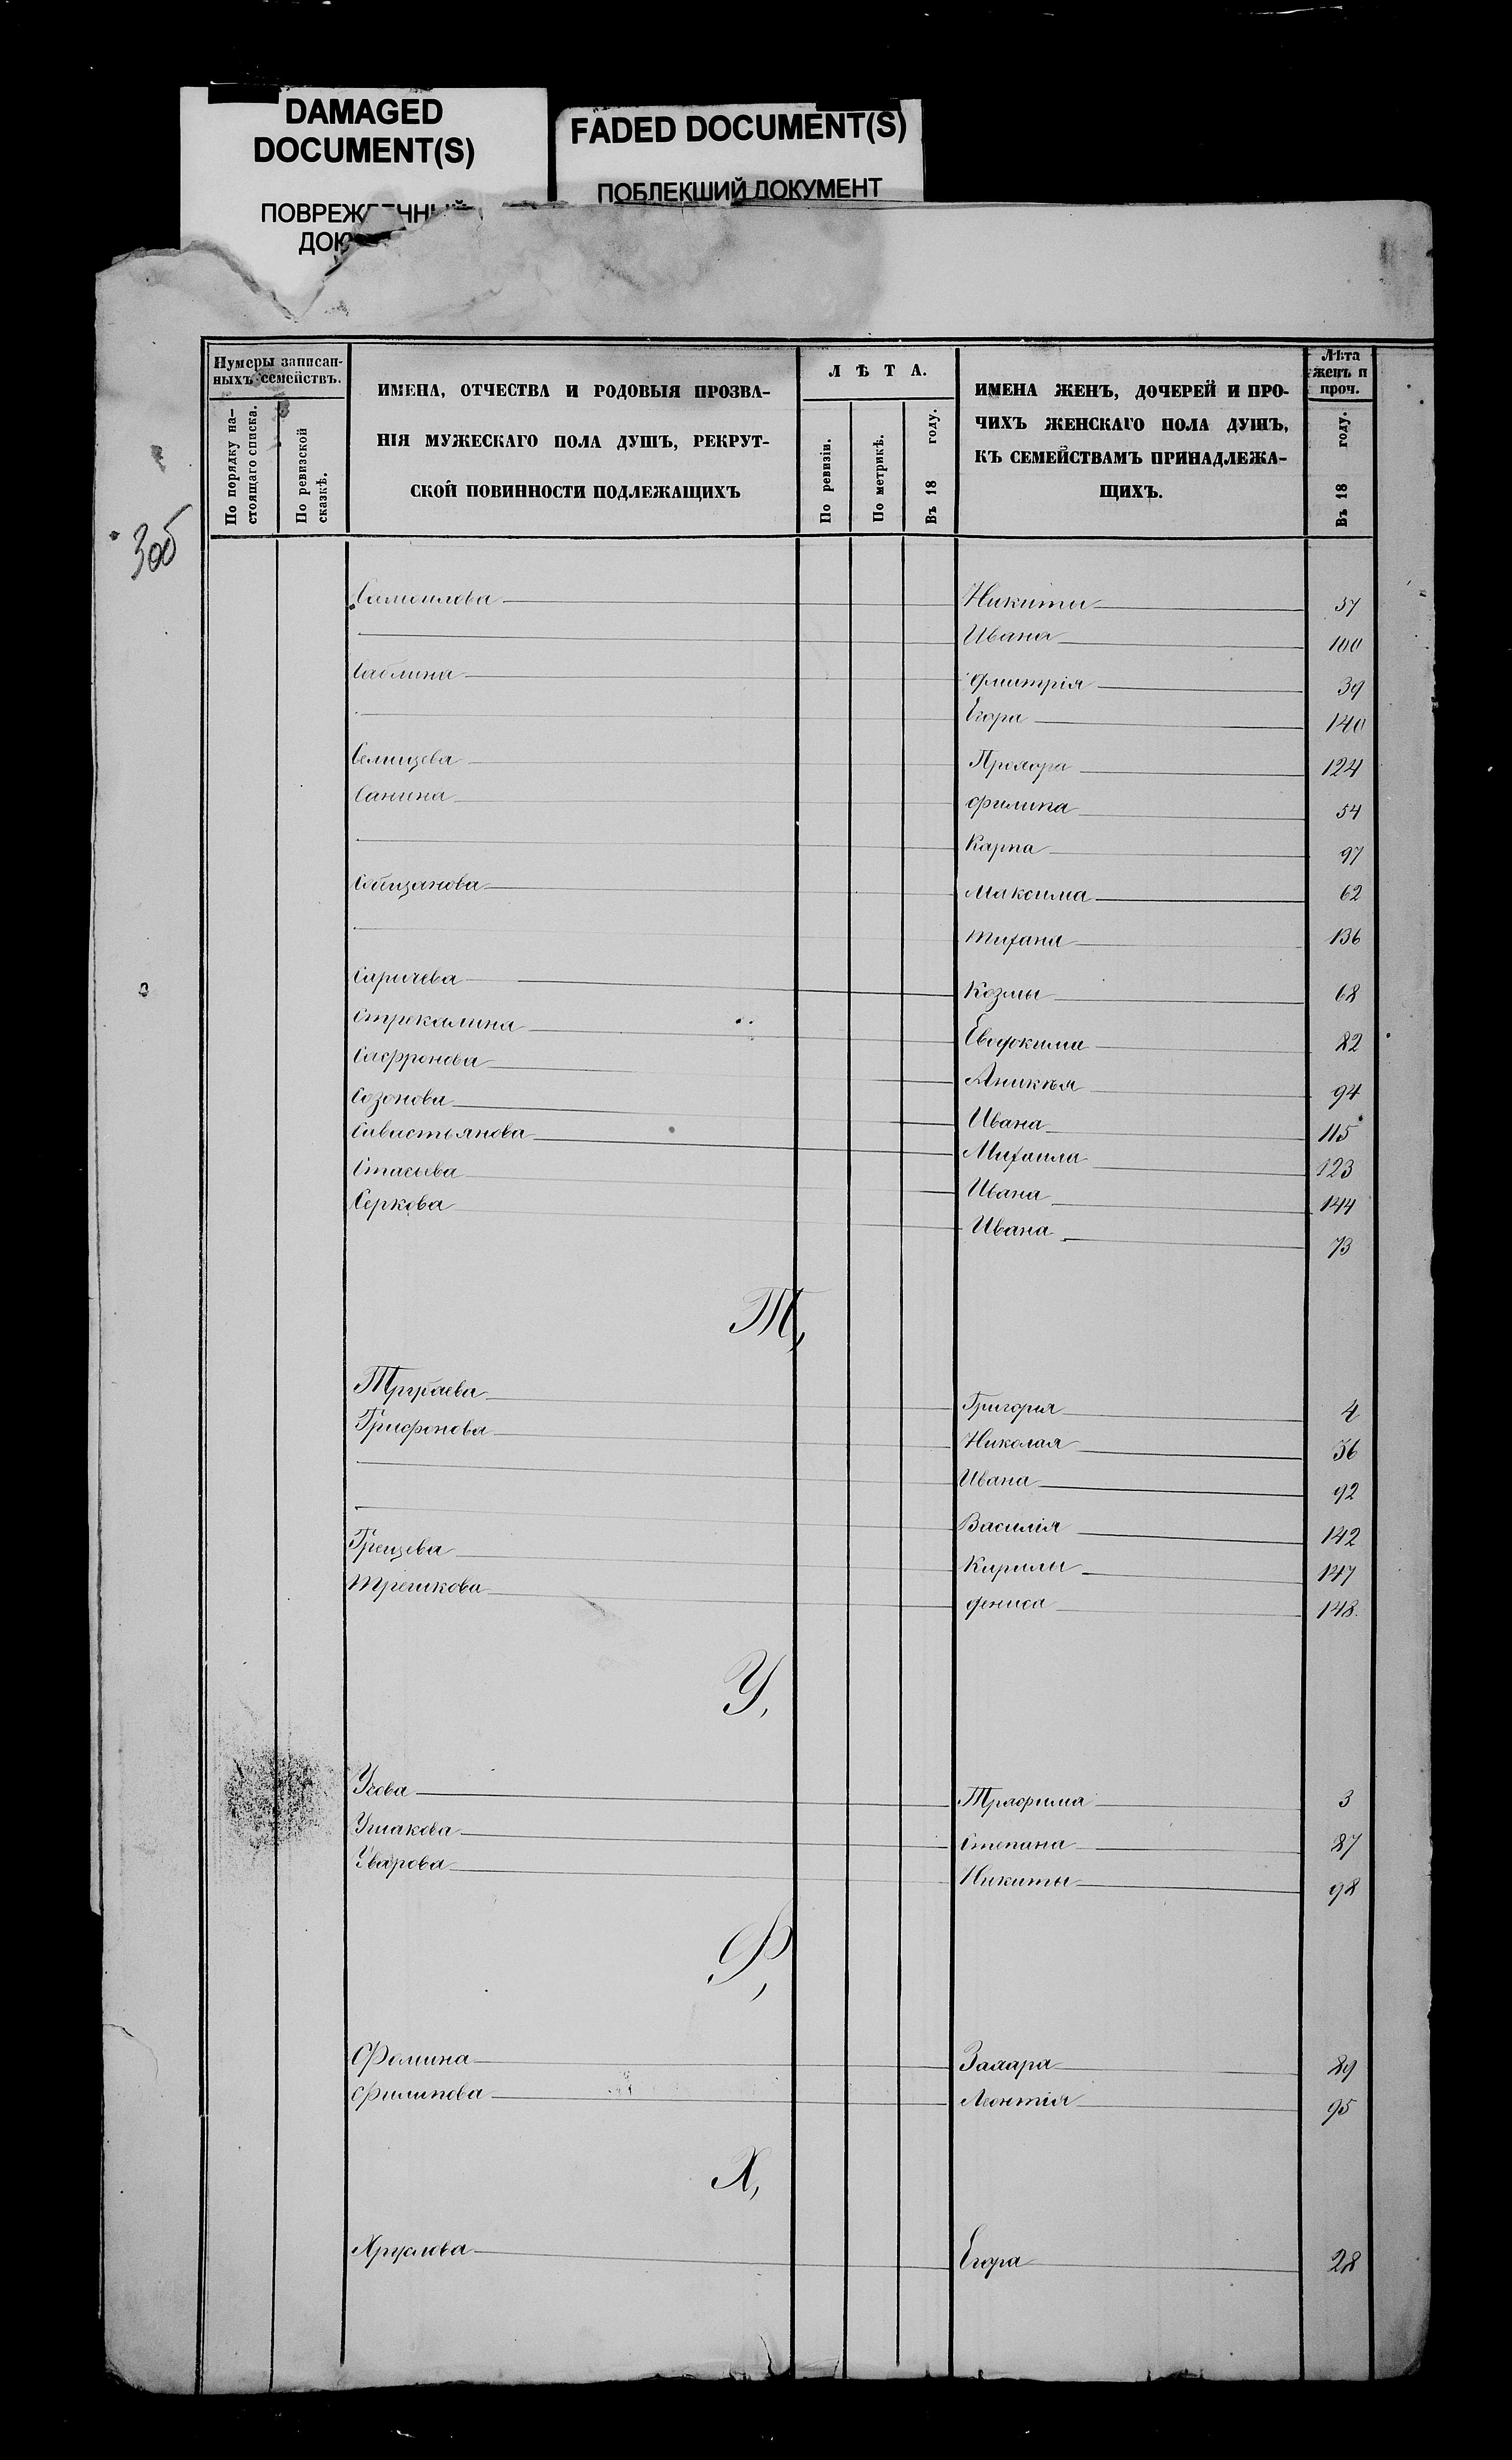 DAMAGED
DOCUMENT(S)
FADED DOCUMENT(S)
ПОБЛЕКШИЙ ДОКУМЕНТ
Нумеры записан-
ныхъ семействъ.
По порядку на-
стоящаго списка.
По ревизской
сказкѣ.
ИМЕНА, ОТЧЕСТВА И РОДОВЫЯ ПРОЗВА-
НІЯ МУЖЕСКАГО ПОЛА ДУШЪ, РЕКРУТ-
СКОЙ ПОВИННОСТИ ПОДЛЕЖАЩИХЪ
ЛѢТА.
По ревизіи.
По метрикѣ.
Въ 18 году.
ИМЕНА ЖЕНЪ, ДОЧЕРЕЙ И ПРО-
ЧИХЪ ЖЕНСКАГО ПОЛА ДУШЪ,
КЪ СЕМЕЙСТВАМЪ ПРИНАДЛЕЖА-
ЩИХЪ.
Лѣта
женъ и
проч.
Въ 18 году.
Самоилова Никиты 57
Ивана 100
Саблина Дмитрія 39
Егора 140
Селищева Прохора 124
Санина Филипа 54
Карпа 97
Максима 62
136
Саричева Козмы 68
Стрекалина Евдокима 82
Сафронова Аникѣя 94
Созонова Ивана 115
Савистьянова Михаила 123
Стасьева Ивана 144
Серкова Ивана 73
Т,
Григорья 4
Трифонова Николая 36
Ивана 92
Василія 142
Грецева Кирилы 147
Трешкова Дениса 148.
У,
Усова Трафима 3
Ушакова Степана 87
Уварова Никиты 98
Ф,
Фомина Захара 89
Филипова Леонтія 95
Х,
Хруслова Егора 28